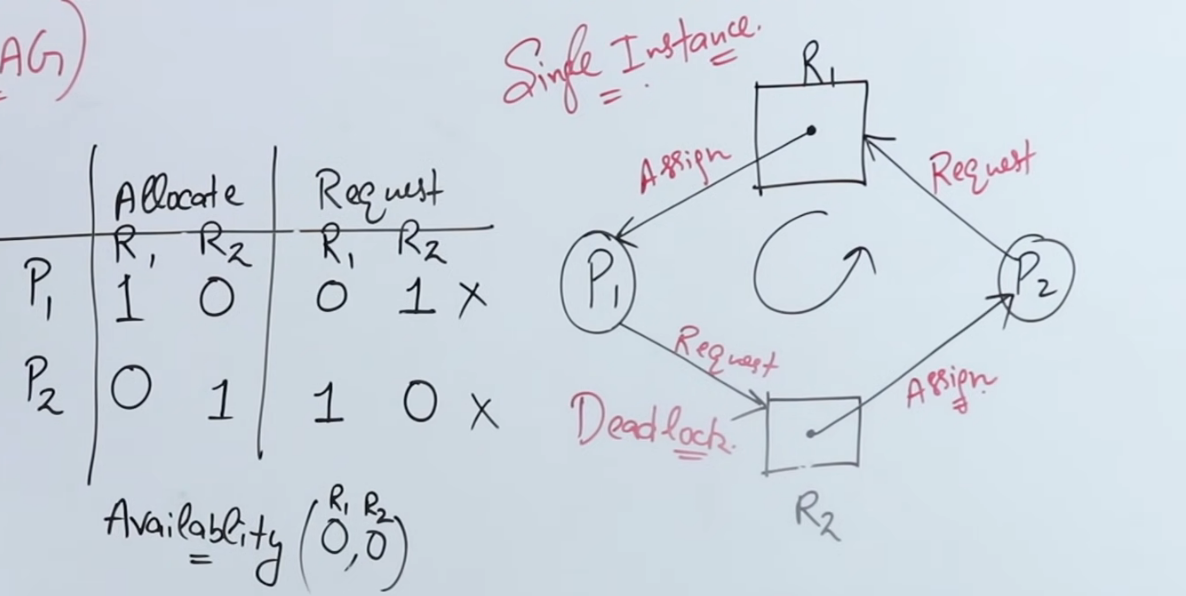 AG)
Allocate Request
R1 R2 R1 R2
P1 1 0 0 1 x
P2 0 1 1 0 x
Availablity (0,0)
R1 R2
Single Instance.
R1
Assign
Request
P1
P2
Request
Assign
Deadlock.
R2